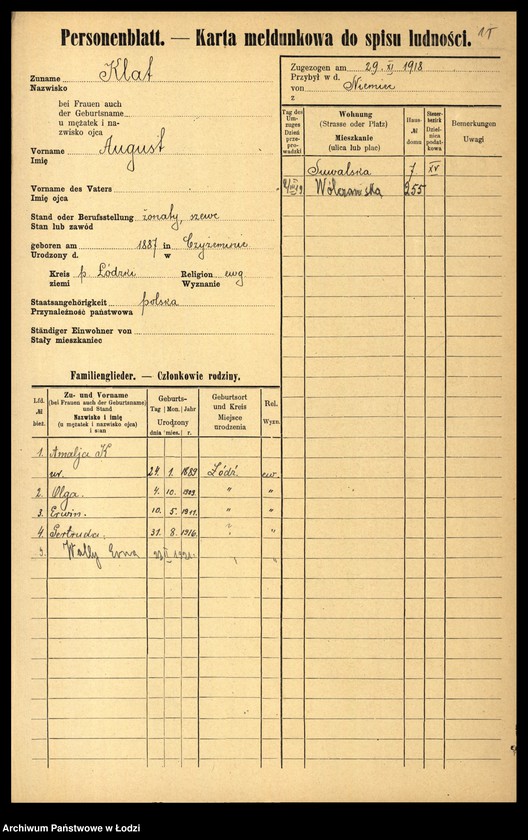 Personenblatt. — Karta meldunkowa do spisu ludności.
Zuname Klat
Nazwisko
bei Frauen auch
der Geburtsname
u mężatek i na-
zwisko ojca
Vorname August
Imię
Vorname des Vaters
Imię ojca
Stand oder Berufsstellung żonaty, szewc
Stan lub zawód
geboren am 1887 in Czyżeminie
Urodzony d. w
Kreis p. Łódzki Religion ewg
ziemi Wyznanie
Staatsangehörigkeit polska
Przynależność państwowa
Ständiger Einwohner von
Stały mieszkaniec
Zugezogen am 29. XI 1918
Przybył w d.
von Niemiec
z
Tag des Um-zuges Dzień prze-prowadzki
Wohnung (Strasse oder Platz) Mieszkanie (ulica lub plac)
Haus-№ domu
Steuer-bezirk Dziel-nica podat-kowa
Bemerkungen Uwagi
Suwalska 7 XV
Wólczańska 255
Familienglieder. — Członkowie rodziny,
Lfd. № bież.
Zu- und Vorname (bei Frauen auch der Geburtsname) und Stand Nazwisko i imię (u mężatek i nazwisko ojca) i stan
Geburts- Tag Mon. Jahr Urodzony dnia mies. r.
Geburtsort und Kreis Miejsce urodzenia
Rel. Wyzn.
1. Amalja K
ur. 24. 1. 1889 Łódź ew.
2. Olga. 4. 10. 1909. " "
3. Erwin. 10. 5. 1911. " "
4. Gertruda. 31. 8. 1916. " "
5. Wally Erna
Archiwum Państwowe w Łodzi